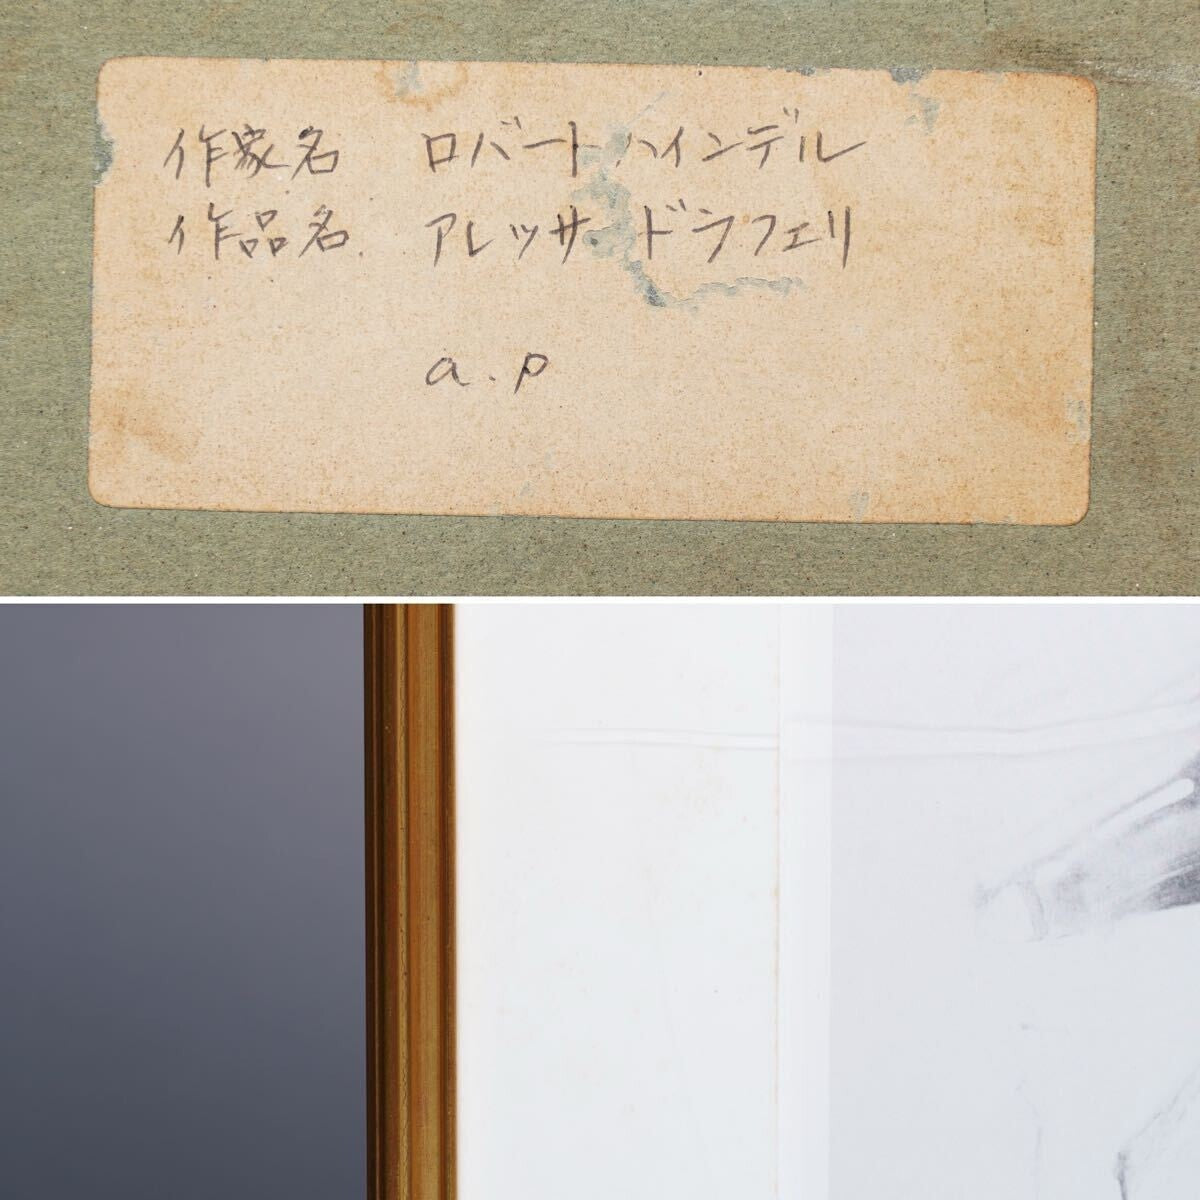 作家名 ロバートハインデル
作品名 アレッサ ドラフェリ
a.p